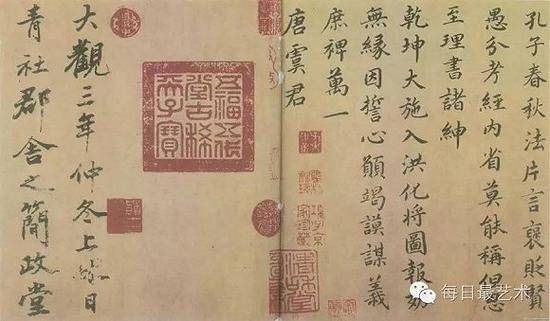 孔子春秋法片言褒貶賢
愚分考經内省莫能稱
至理書諸紳
乾坤大施入洪化將圖報效
無緣因誓心願竭謨謀義
庶裨萬一
唐虞君
五福五代堂古稀天子寶
大觀三年仲冬上澣日
青社郡舍之簡政堂
每日最艺术